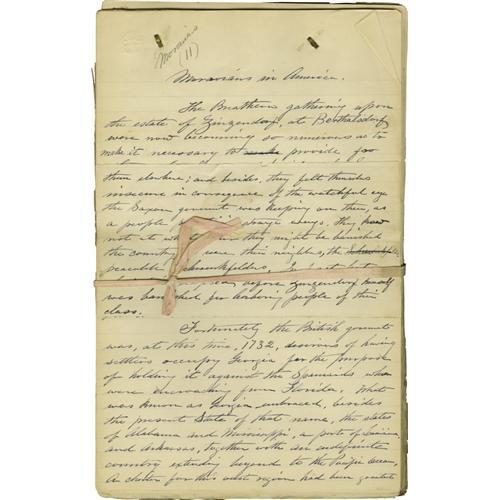 Moravians
(11)
Moravians in America.
The Brethren gathering upon
the estate of Zinzendorf, at Berthelsdorf
were now becoming so numerous as to
make it necessary to make provide for
them elsewhere; and besides, they felt themselves
insecure in consequence of the watchful eye
the Saxon governmt was keeping on them, as
a people of strange ways, they knew
not it they might be banished
the country were their neighbors, the
peaceable Schwenkfelders.
before Zinzendorf himself
was banished for harboring people of their
class.
Fortunately the British governmt
was, at this time, 1732, desirous of having
settlers occupy Georgia for the purpose
of holding it against the Spaniards who
were encroaching from Florida. What
was known as Georgia embraced, besides
the present State of that name, the states
of Alabama and Mississippi, a part of Louisiana
and Arkansas, together with an indefinite
country extending beyond to the Pacific Ocean.
A charter for this vast region had been granted